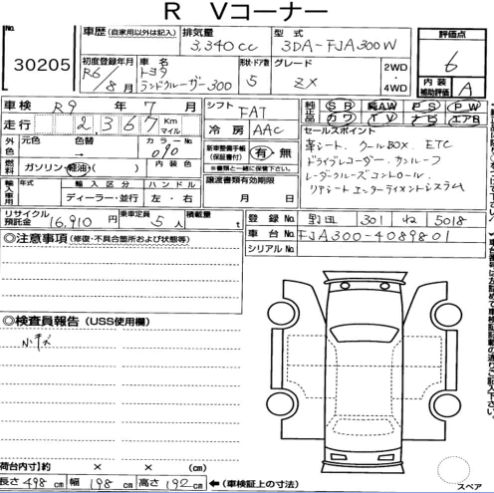 R Vコーナー
No.
30205
車歴 (自家用以外は記入)
排気量
3,340cc
型式
3DA-FJA300W
評価点
6
初度登録年月
R6/8月
車名
トヨタ
ランドクルーザー300
形状・ドア数
5
グレード
ZX
2WD
4WD
内装
補助評価
A
車検 R9年7月
シフト
FAT
純正部品
SR 純AW PS PW
カワ TV ナビ エアB
走行 2,367 Km マイル
冷房 AAC
セールスポイント
革シート、クールBOX、ETC
ドライブレコーダー、サンルーフ
レーダークルーズコントロール
リヤシートエンターテイメントシステム
外色
元色
色替
カラーNo.
090
新車整備手帳
(保証書付)
有・無
※書類と一緒に保管して下さい。
燃料
ガソリン・軽油( )
内装色
譲渡書類有効期限
月 日
輸入車用
年式
輸入区分
ハンドル
ディーラー・並行
左・右
リサイクル預託金
16,910円
乗車定員
5人
積載量
t
登録No. 野田 301 ね 5018
車台No. FJA300-4089801
シリアルNo.
◎注意事項(修復・不具合箇所および状態等)
◎検査員報告 (USS使用欄)
小キズ
荷台内寸)約 × × (cm)
長さ 498cm 幅 198cm 高さ 192cm
←(車検証上の寸法)
スペア